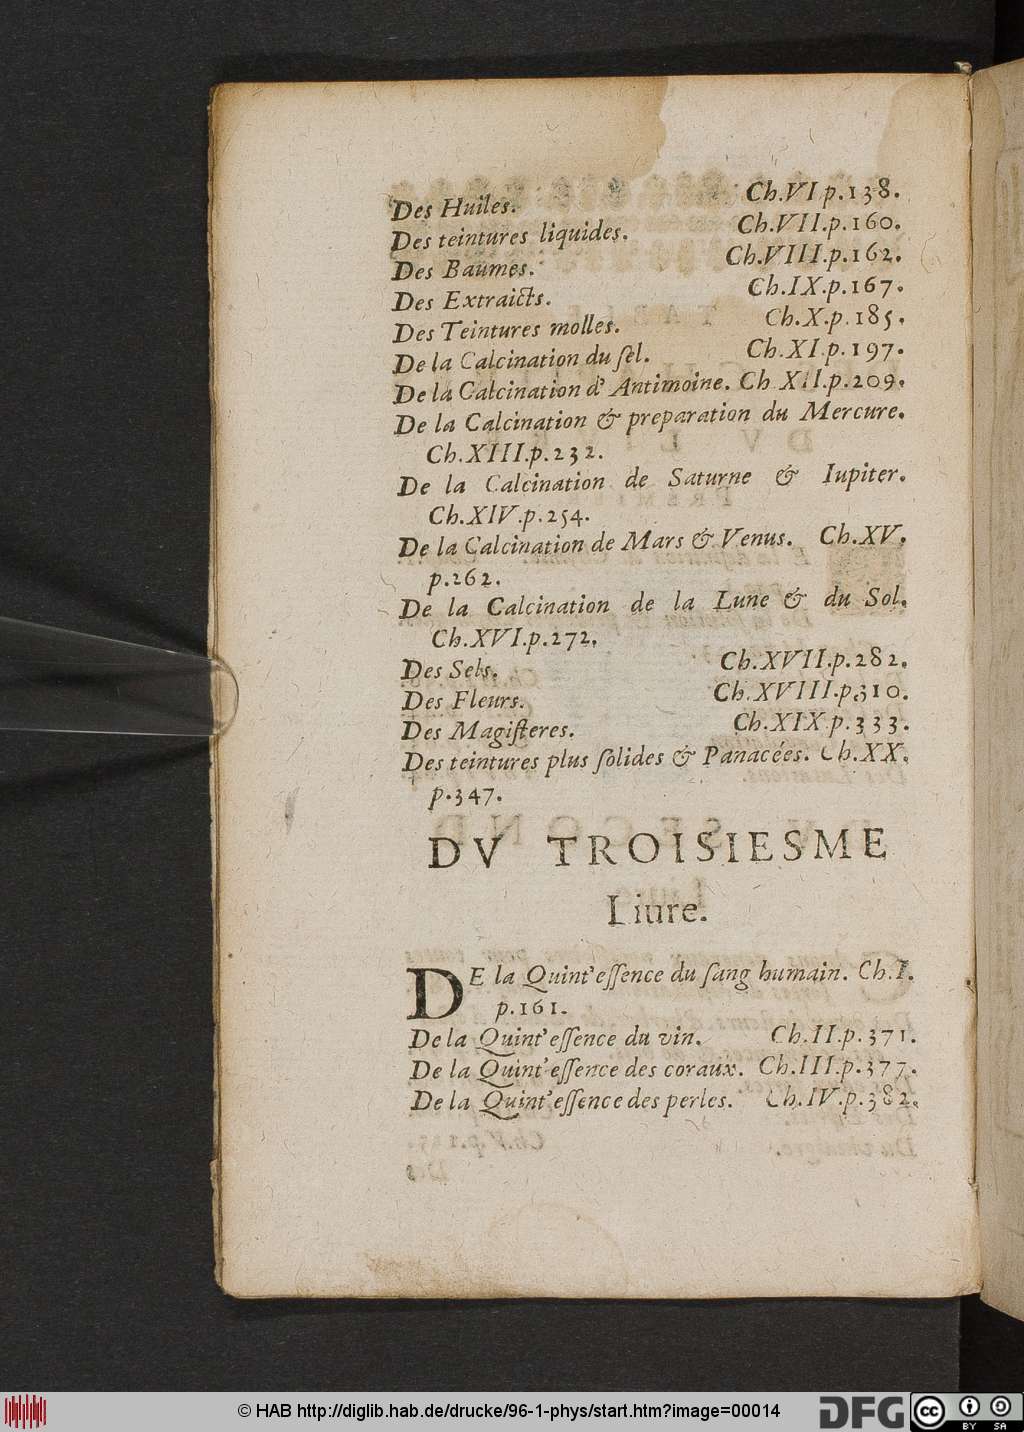 Des Huiles. Ch.VI p.138.
Des teintures liquides. Ch.VII.p.160.
Des Baumes. Ch.VIII.p.162.
Des Extraicts. Ch.IX.p.167.
Des Teintures molles. Ch.X.p.185.
De la Calcination du ſel. Ch.XI.p.197.
De la Calcination d'Antimoine. Ch XII.p.209.
De la Calcination & preparation du Mercure.
Ch.XIII.p.232.
De la Calcination de Saturne & Iupiter.
Ch.XIV.p.254.
De la Calcination de Mars & Venus. Ch.XV.
p.262.
De la Calcination de la Lune & du Sol.
Ch.XVI.p.272.
Des Sels. Ch.XVII.p.282.
Des Fleurs. Ch.XVIII.p.310.
Des Magiſteres. Ch.XIX p.333.
Des teintures plus ſolides & Panacées. Ch.XX.
p.347.
DV TROISIESME
Liure.
DE la Quint'eſſence du ſang humain. Ch.I.
p.161.
De la Quint'eſſence du vin. Ch.II.p.371.
De la Quint'eſſence des coraux. Ch.III.p.377.
De la Quint'eſſence des perles. Ch.IV.p.382.
© HAB http://diglib.hab.de/drucke/96-1-phys/start.htm?image=00014
DFG
cc BY SA